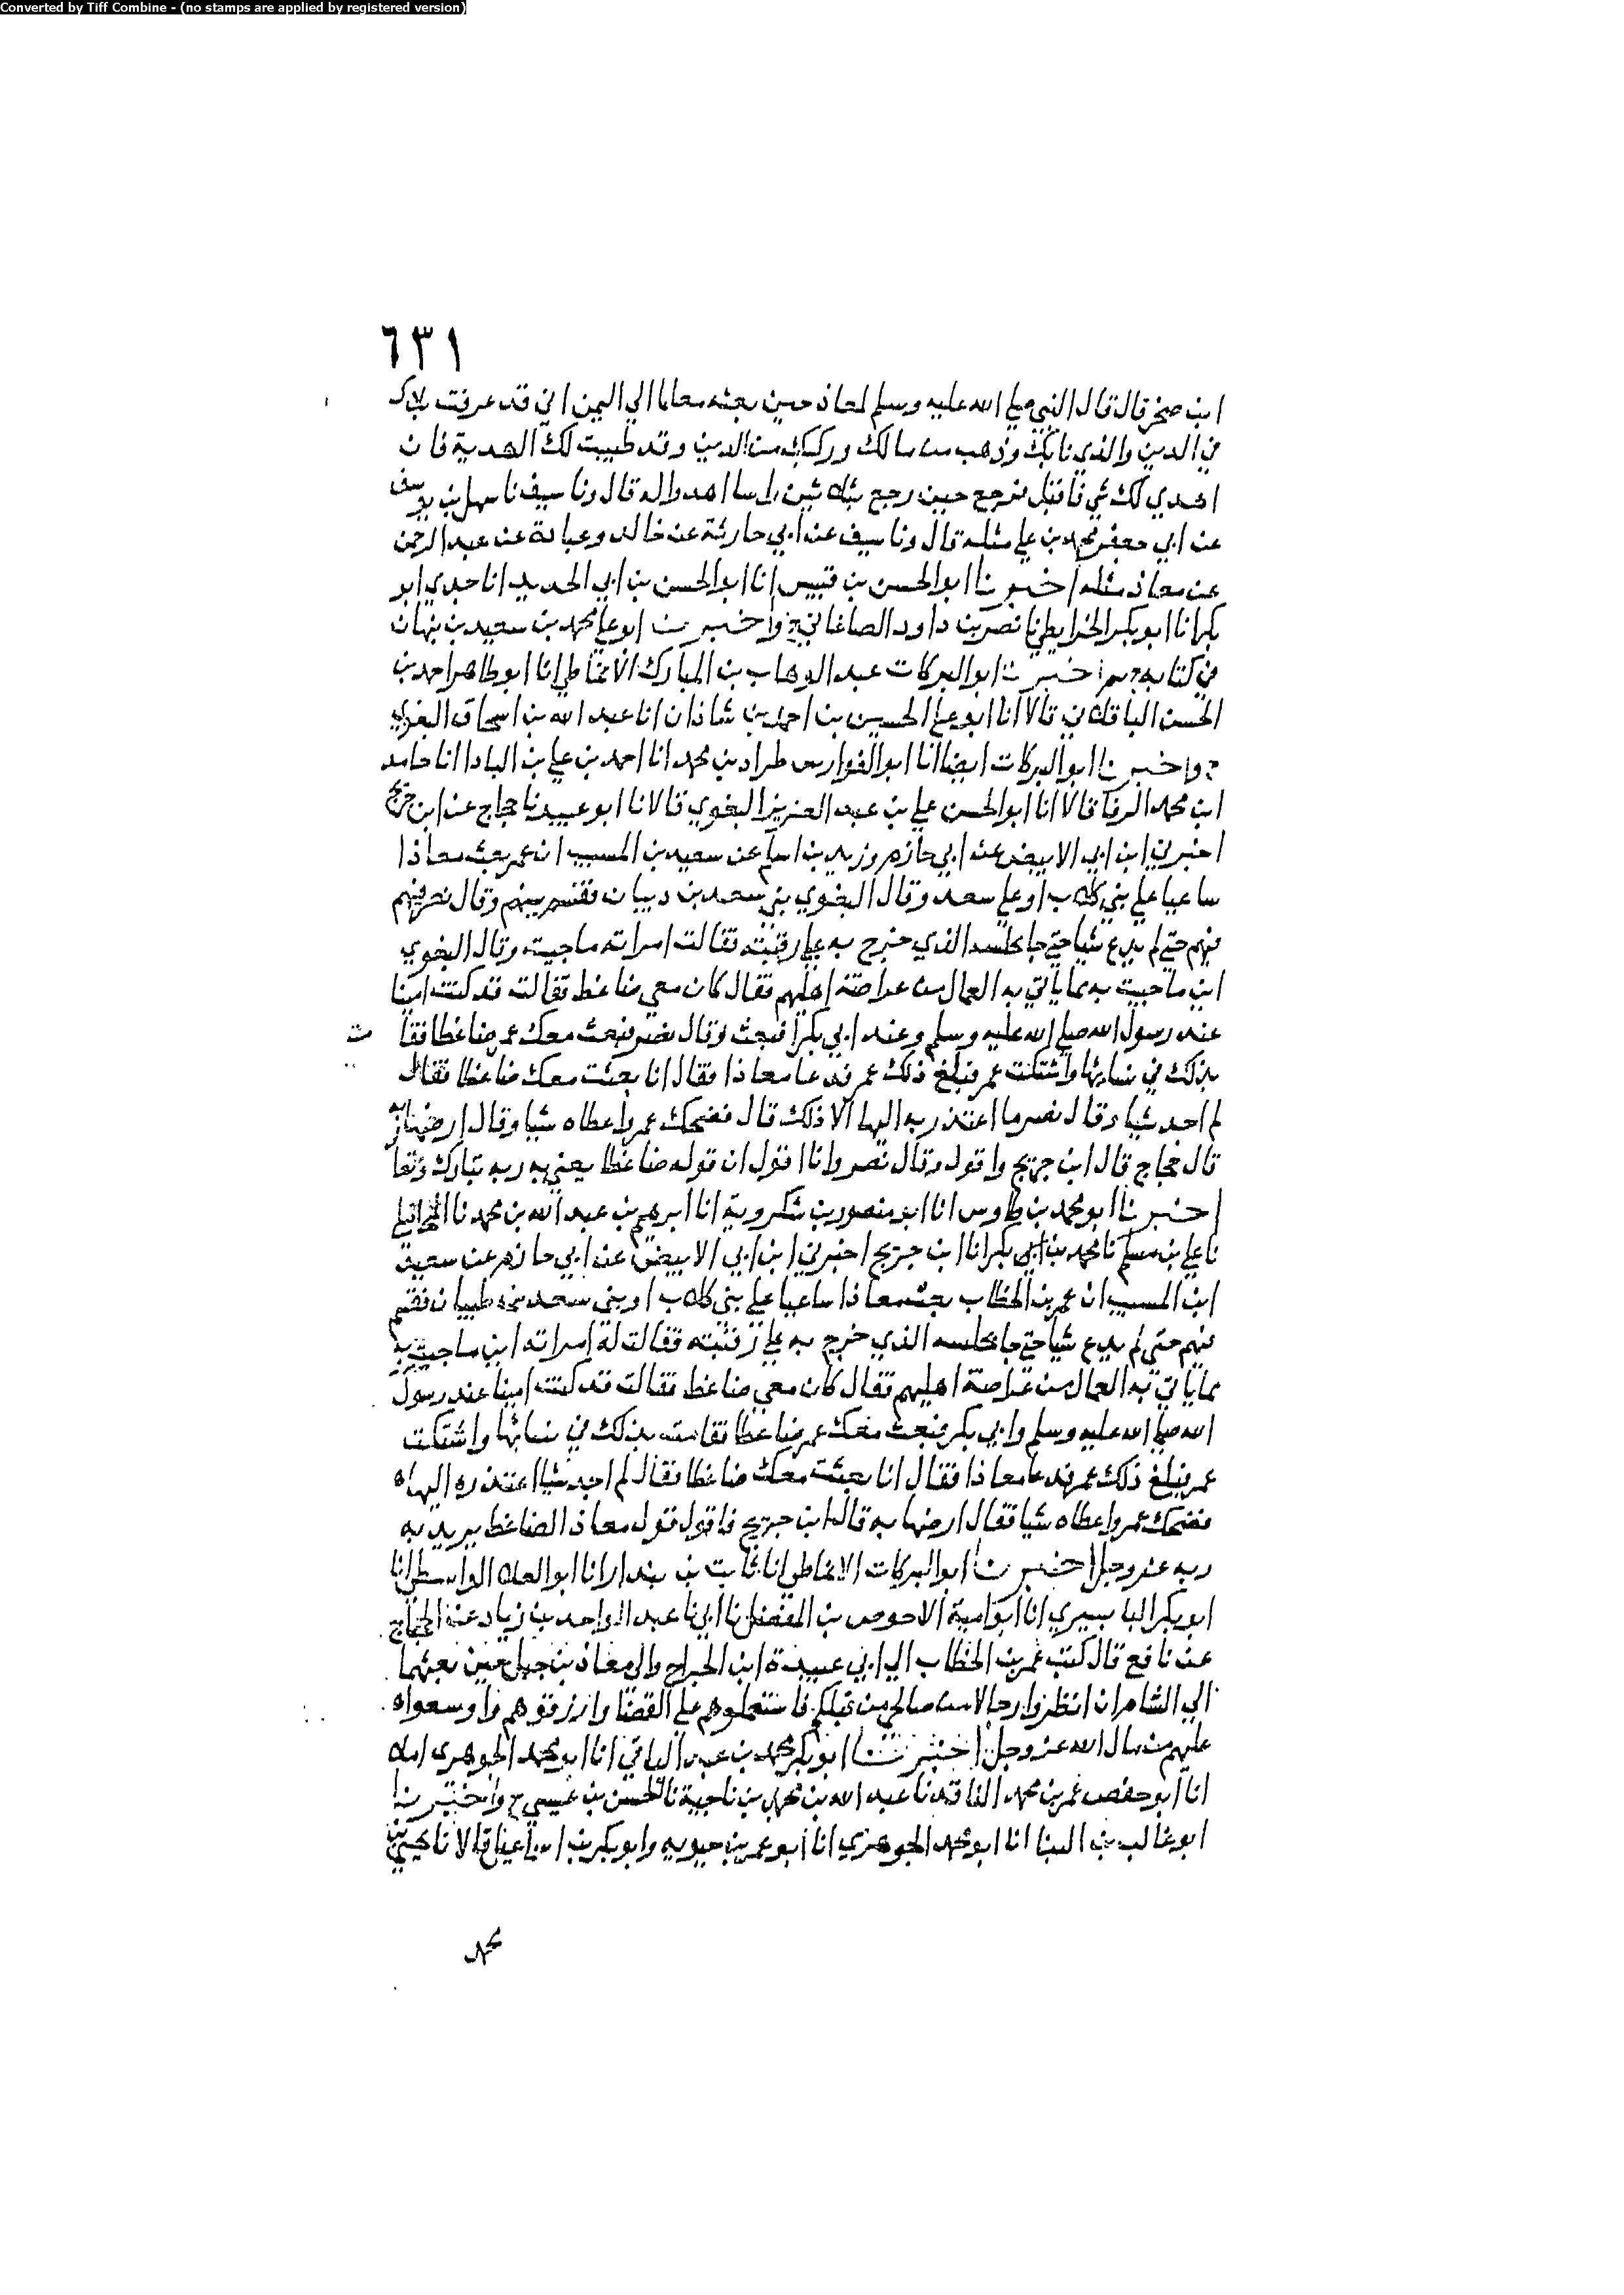 Converted by Tiff Combine - (no stamps are applied by registered version)
٦٣١
ابن صخر قال قال النبي صلى الله عليه وسلم لمعاذ حين بعثه معلما الى اليمن اني قد عرفت بلاك
في الدين والذي نابك وذهب من مالك وركبك من الدين وقد طيبت لك الهدية فان
اهدي لك شي فاقبل فرجع حين رجع بثلاثين راسا اهدوا له قال ونا سيف نا سهل بن يوسف
عن ابي جعفر محمد بن علي مثله قال ونا سيف عن ابي حارثة عن خالد وعبادة عن عبد الرحمن
عن معاذ مثله اخبرنا ابو الحسن بن قبيس انا ابو الحسن بن ابي الحديد انا جدي ابو
بكر انا ابو بكر الخرايطي نا نصر بن داود الصاغاني ح واخبرنا ابو علي محمد بن سعيد بن نبهان
في كتابه ح اخبرنا ابو البركات عبد الوهاب بن المبارك الانماطي انا ابو طاهر احمد بن
الحسن الباقلاني قالا انا ابو علي الحسين بن احمد بن شاذان انا عبد الله بن اسحاق البغوي
ح واخبرنا ابو البركات ايضا انا ابو الفوارس طراد بن محمد انا احمد بن علي بن البادا انا حامد
ابن محمد الرفا قالا انا ابو الحسن علي بن عبد العزيز البغوي قالا نا ابو عبيد نا حجاج عن ابن جريج
اخبرني ابن ابي الابيض عن ابي حازم وزيد بن اسلم عن سعيد بن المسيب ان عمر بعث معاذا
ساعيا على بني كلاب او على سعد وقال البغوي بني سعد بن دبيان فقسم بينهم وقال نصر فيهم
فيهم حتى لم يدع شيا حتى جا بحلسه الذي خرج به على رقبته فقالت امراته ما جيت وقال البغوي
اين ما جيت به مما ياتي به العمال من عراضة اهليهم فقال كان معي ضاغط فقالت قد كنت امينا
عند رسول الله صلى الله عليه وسلم وعند ابي بكر افبعث وقال نصر فبعث معك عمر ضاغطا فقا مت
بذلك في نسايها واشتكت عمر فبلغ ذلك عمر فدعا معاذا فقال انا بعثت معك ضاغطا فقال
لم اجد شيا وقال نصر ما اعتذر به اليها الا ذلك قال فضحك عمر واعطاه شيا وقال ارضها به
قال حجاج قال ابن جريج واقول وقال نصر وانا اقول ان قوله ضاغطا يعني به ربه تبارك وتعا
اخبرنا ابو محمد بن طاوس انا ابو منصور بن شكروية انا ابرهيم بن عبد الله بن محمد نا المحاملي
نا علي بن مسلم نا محمد بن ابي بكر انا ابن جريج اخبرني ابن ابي الابيض عن ابي حازم عن سعيد
ابن المسيب ان عمر بن الخطاب بعث معاذا ساعيا على بني كلاب او بني سعد فقسم
فيهم حتى لم يدع شيا حتى جا بحلسه الذي خرج به على رقبته فقالت له امراته اين ما جيت به
مما ياتي به العمال من عراضة اهليهم فقال كان معي ضاغط فقالت قد كنت امينا عند رسول
الله صلى الله عليه وسلم وابي بكر فبعث معك عمر ضاغطا فقامت بذلك في نسائها واشتكت
عمر فبلغ ذلك عمر فدعا معاذا فقال انا بعثت معك ضاغطا فقال لم اجد شيا اعتذر به اليها
فضحك عمر واعطاه شيا فقال ارضها به قال ابن جريج فاقول قول معاذ الضاغط يريد به
ربه عز وجل اخبرنا ابو البركات الانماطي انا ثابت بن بندار انا ابو العلا الواسطي انا
ابو بكر البابسيري انا ابو امية الاحوص بن المفضل نا ابي نا عبد الواحد بن زياد عن الحجاج
عن نافع قال كتب عمر بن الخطاب الى ابي عبيدة ابن الجراح والى معاذ بن جبل حين بعثهما
الى الشام ان انظروا رجالا من صالحي من قبلكم فاستعملوهم على القضا وارزقوهم واوسعوا
عليهم من مال الله عز وجل اخبرنا ابو بكر محمد بن عبد الباقي انا ابو محمد الجوهري املا
انا ابو حفص عمر بن محمد الناقد نا عبد الله بن محمد بن ناجية نا الحسن بن عيسى ح واخبرنا
ابو غالب بن البنا انا ابو محمد الجوهري انا ابو عمر بن حيويه وابو بكر بن اسماعيل قالا نا يحيى بن
محمد